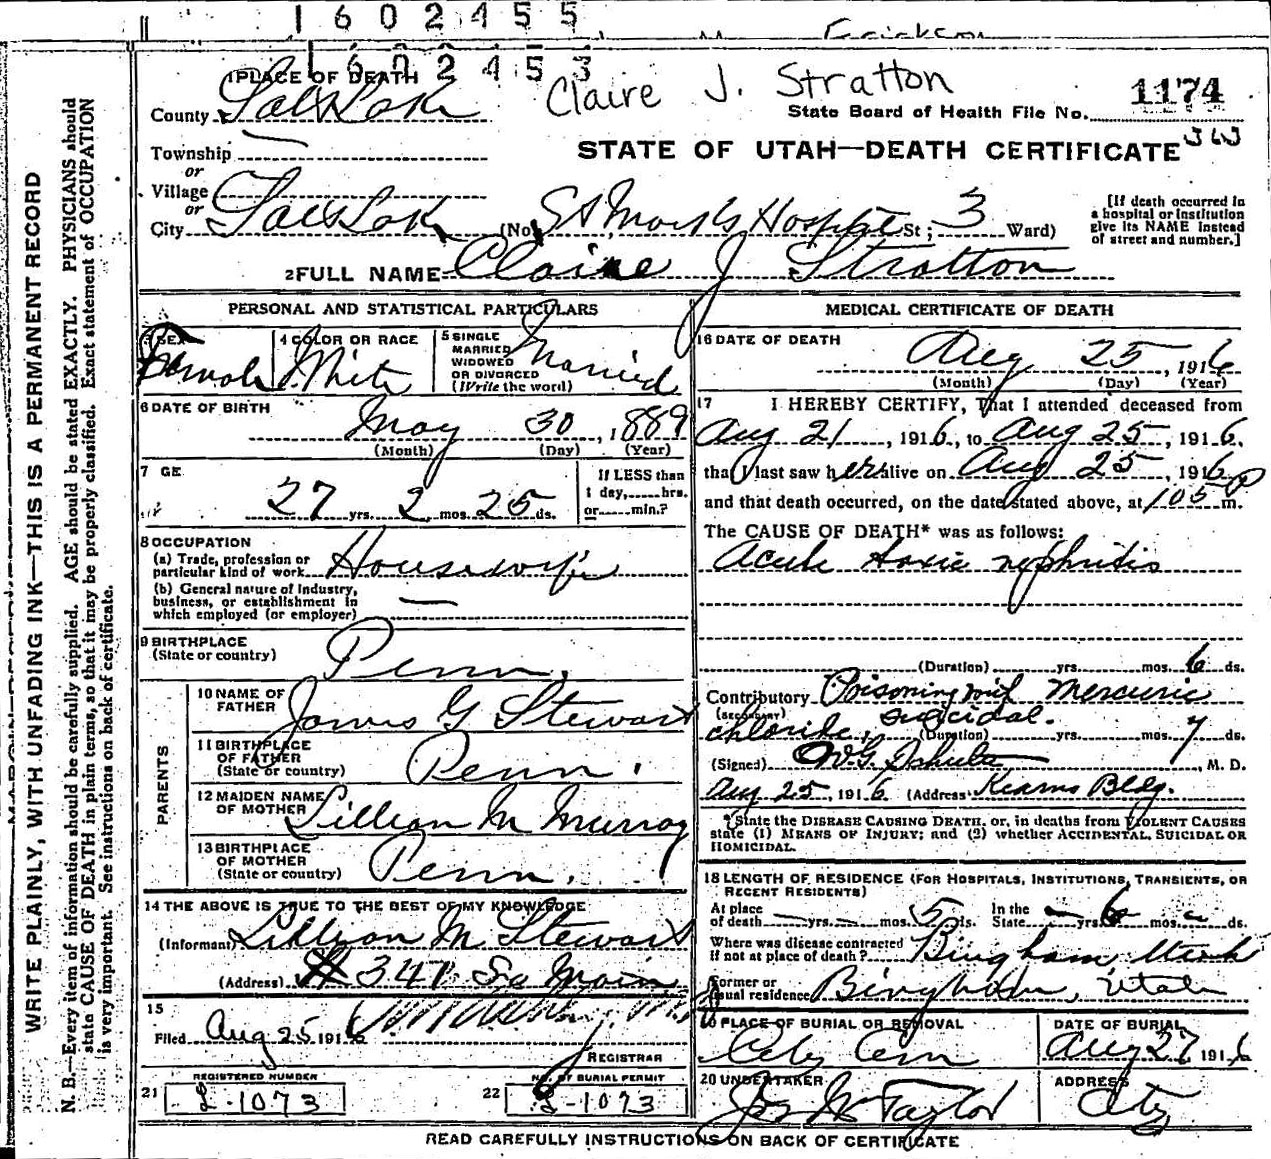 1602455
1602453
1 PLACE OF DEATH
Claire J. Stratton
1174
County Salt Lake
State Board of Health File No.
Township
STATE OF UTAH—DEATH CERTIFICATE
or
Village
or
City Salt Lake (No St Marks Hospital St; 3 Ward)
[If death occurred in a hospital or institution give its NAME instead of street and number.]
2 FULL NAME Claire J Stratton
PERSONAL AND STATISTICAL PARTICULARS
3 SEX Female
4 COLOR OR RACE White
5 SINGLE MARRIED WIDOWED OR DIVORCED (Write the word) Married
6 DATE OF BIRTH
May 30, 1889
(Month) (Day) (Year)
7 GE
27 yrs. 2 mos. 25 ds.
If LESS than 1 day,......hrs. or......min.?
8 OCCUPATION
(a) Trade, profession or particular kind of work Housewife
(b) General nature of Industry, business, or establishment in which employed (or employer) —
9 BIRTHPLACE
(State or country) Penn.
PARENTS
10 NAME OF FATHER James G Stewart
11 BIRTHPLACE OF FATHER (State or country) Penn.
12 MAIDEN NAME OF MOTHER Lillian M Murray
13 BIRTHPLACE OF MOTHER (State or country) Penn.
14 THE ABOVE IS TRUE TO THE BEST OF MY KNOWLEDGE
(Informant) Lillian M Stewart
(Address) 347 So Main
15
Filed Aug 25 1916
REGISTRAR
21 REGISTERED NUMBER L-1073
22 NO. OF BURIAL PERMIT L-1073
MEDICAL CERTIFICATE OF DEATH
16 DATE OF DEATH
Aug 25, 1916
(Month) (Day) (Year)
17 I HEREBY CERTIFY, That I attended deceased from
Aug 21, 1916, to Aug 25, 1916,
that I last saw her alive on Aug 25, 1916
and that death occurred, on the date stated above, at 105 P m.
The CAUSE OF DEATH* was as follows:
Acute toxic nephritis
(Duration) yrs. mos. 6 ds.
Contributory Poisoning with mercuric
(SECONDARY) chloride, suicidal.
(Duration) yrs. mos. 7 ds.
(Signed) , M. D.
Aug 25, 1916 (Address) Kearns Bldg.
*State the DISEASE CAUSING DEATH, or, in deaths from VIOLENT CAUSES
state (1) MEANS OF INJURY; and (2) whether ACCIDENTAL, SUICIDAL OR
HOMICIDAL.
18 LENGTH OF RESIDENCE (FOR HOSPITALS, INSTITUTIONS, TRANSIENTS, OR
RECENT RESIDENTS)
At place of death — yrs. — mos. 5 ds. In the State 6 yrs. — mos. — ds.
Where was disease contracted if not at place of death? Bingham Utah
Former or usual residence Bingham, Utah
19 PLACE OF BURIAL OR REMOVAL City Cem
DATE OF BURIAL Aug 27 1916
20 UNDERTAKER Jos Wm Taylor
ADDRESS City
READ CAREFULLY INSTRUCTIONS ON BACK OF CERTIFICATE
WRITE PLAINLY, WITH UNFADING INK—THIS IS A PERMANENT RECORD
N. B.—Every item of information should be carefully supplied. AGE should be stated EXACTLY. PHYSICIANS should
state CAUSE OF DEATH in plain terms, so that it may be properly classified. Exact statement of OCCUPATION
is very important. See instructions on back of certificate.